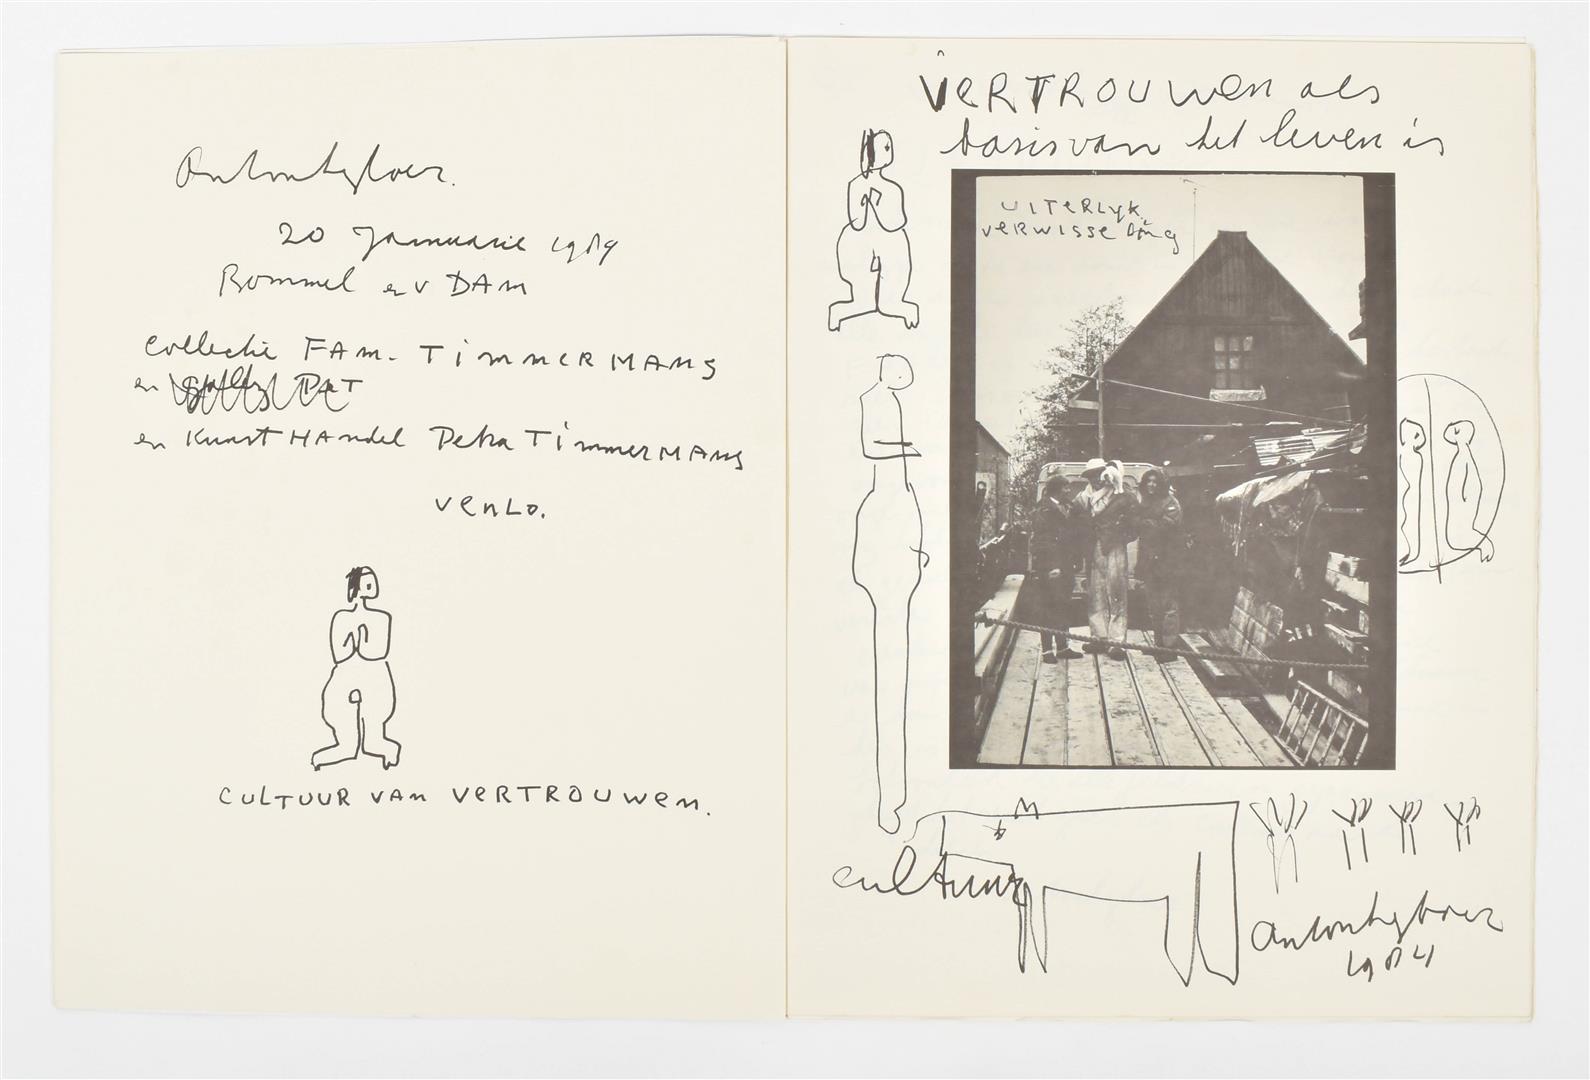 Anton Heyboer.
20 Januarie 1989
Rommel en v DAM
collectie FAM. TimmerMANS
en
en KunstHANdel Petra TimmerMANS
venLo.
CULTUUR VAN VERTROUWEN.
VERTROUWEN als
basis van het leven is
UITERLYK
VERWISSELING
cultuur
Anton Heyboer
1984